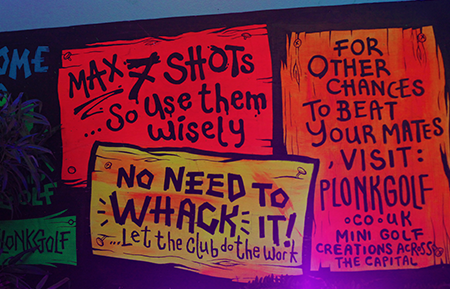 OME
MAX 7 SHOTS
...So use them
wisely
NO NEED TO
WHACK IT!
...Let the Club do the work
FOR
OTHER
CHANCES
TO BEAT
YOUR MATES,
VISIT:
PLONKGOLF
.CO.UK
MINI GOLF
CREATIONS ACROSS
THE CAPITAL
GOLF
PLONKGOLF